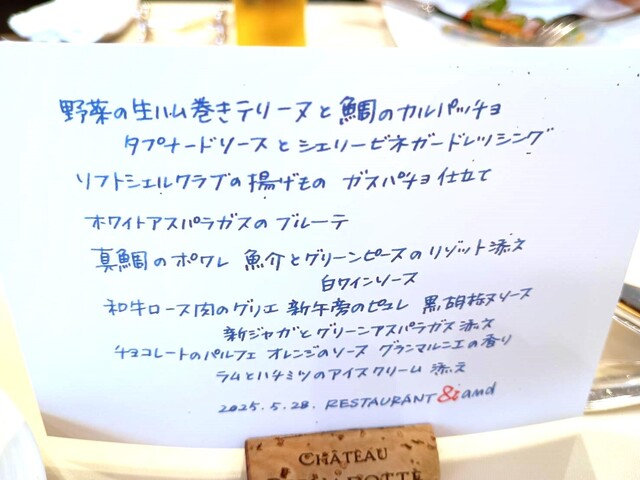 野菜の生ハム巻きテリーヌと鯛のカルパッチョ
タプナードソースとシェリービネガードレッシング
ソフトシェルクラブの揚げもの ガスパチョ仕立て
ホワイトアスパラガスのブルーテ
真鯛のポワレ 魚介とグリーンピースのリゾット添え
白ワインソース
和牛ロース肉のグリエ 新牛蒡のピュレ 黒胡椒ソース
新ジャガとグリーンアスパラガス添え
チョコレートのパルフェ オレンジのソース グランマルニエの香り
ラムとハチミツのアイスクリーム 添え
2025.5.28. RESTAURANT &and
CHÂTEAU